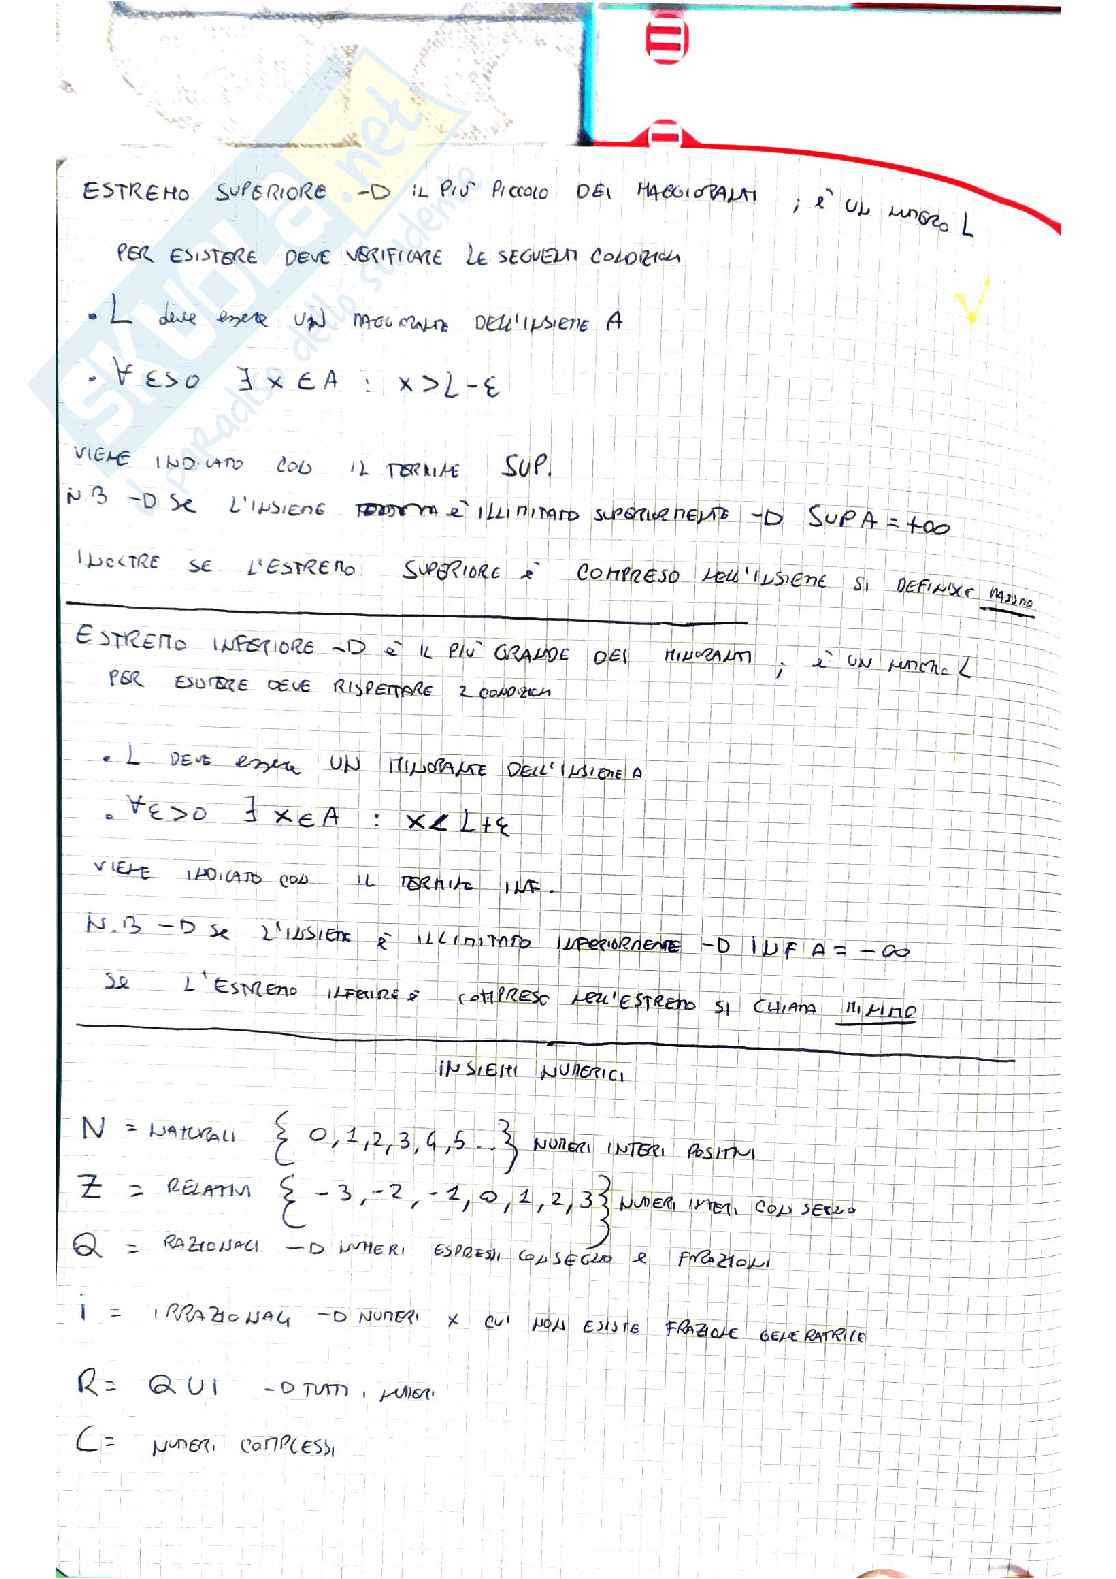 SKUOLA.net
il paradiso dello studente
ESTREMO SUPERIORE -D IL PIÙ PICCOLO DEI MAGGIORANTI ; è UN NUMERO L
PER ESISTERE DEVE VERIFICARE LE SEGUENTI CONDIZIONI
• L deve essere UN MAGGIORANTE DELL'INSIEME A
• ∀ ε>0 ∃ x ∈ A : x > L-ε
VIENE INDICATO CON IL TERMINE SUP.
N.B -D Se L'INSIEME è ILLIMITATO SUPERIORMENTE -D SUP A = +∞
INOLTRE SE L'ESTREMO SUPERIORE è COMPRESO NELL'INSIEME SI DEFINISCE MASSIMO
ESTREMO INFERIORE -D è IL PIÙ GRANDE DEI MINORANTI ; è UN NUMERO L
PER ESISTERE DEVE RISPETTARE 2 CONDIZIONI
• L DEVE essere UN MINORANTE DELL'INSIEME A
• ∀ε>0 ∃ x∈A : x< L+ε
VIENE INDICATO CON IL TERMINE INF.
N.B -D Se L'INSIEME è ILLIMITATO INFERIORMENTE -D INF A = -∞
Se L'ESTREMO INFERIORE è COMPRESO NELL'ESTREMO SI CHIAMA MINIMO
INSIEMI NUMERICI
N = NATURALI { 0,1,2,3,4,5...} NUMERI INTERI POSITIVI
Z = RELATIVI { -3,-2,-1,0,1,2,3} NUMERI INTERI CON SEGNO
Q = RAZIONALI -D NUMERI ESPRESSI CON SEGNO e FRAZIONI
i = IRRAZIONALI -D NUMERI x CUI NON ESISTE FRAZIONE GENERATRICE
R = Q U I -D TUTTI i NUMERI
C = NUMERI COMPLESSI